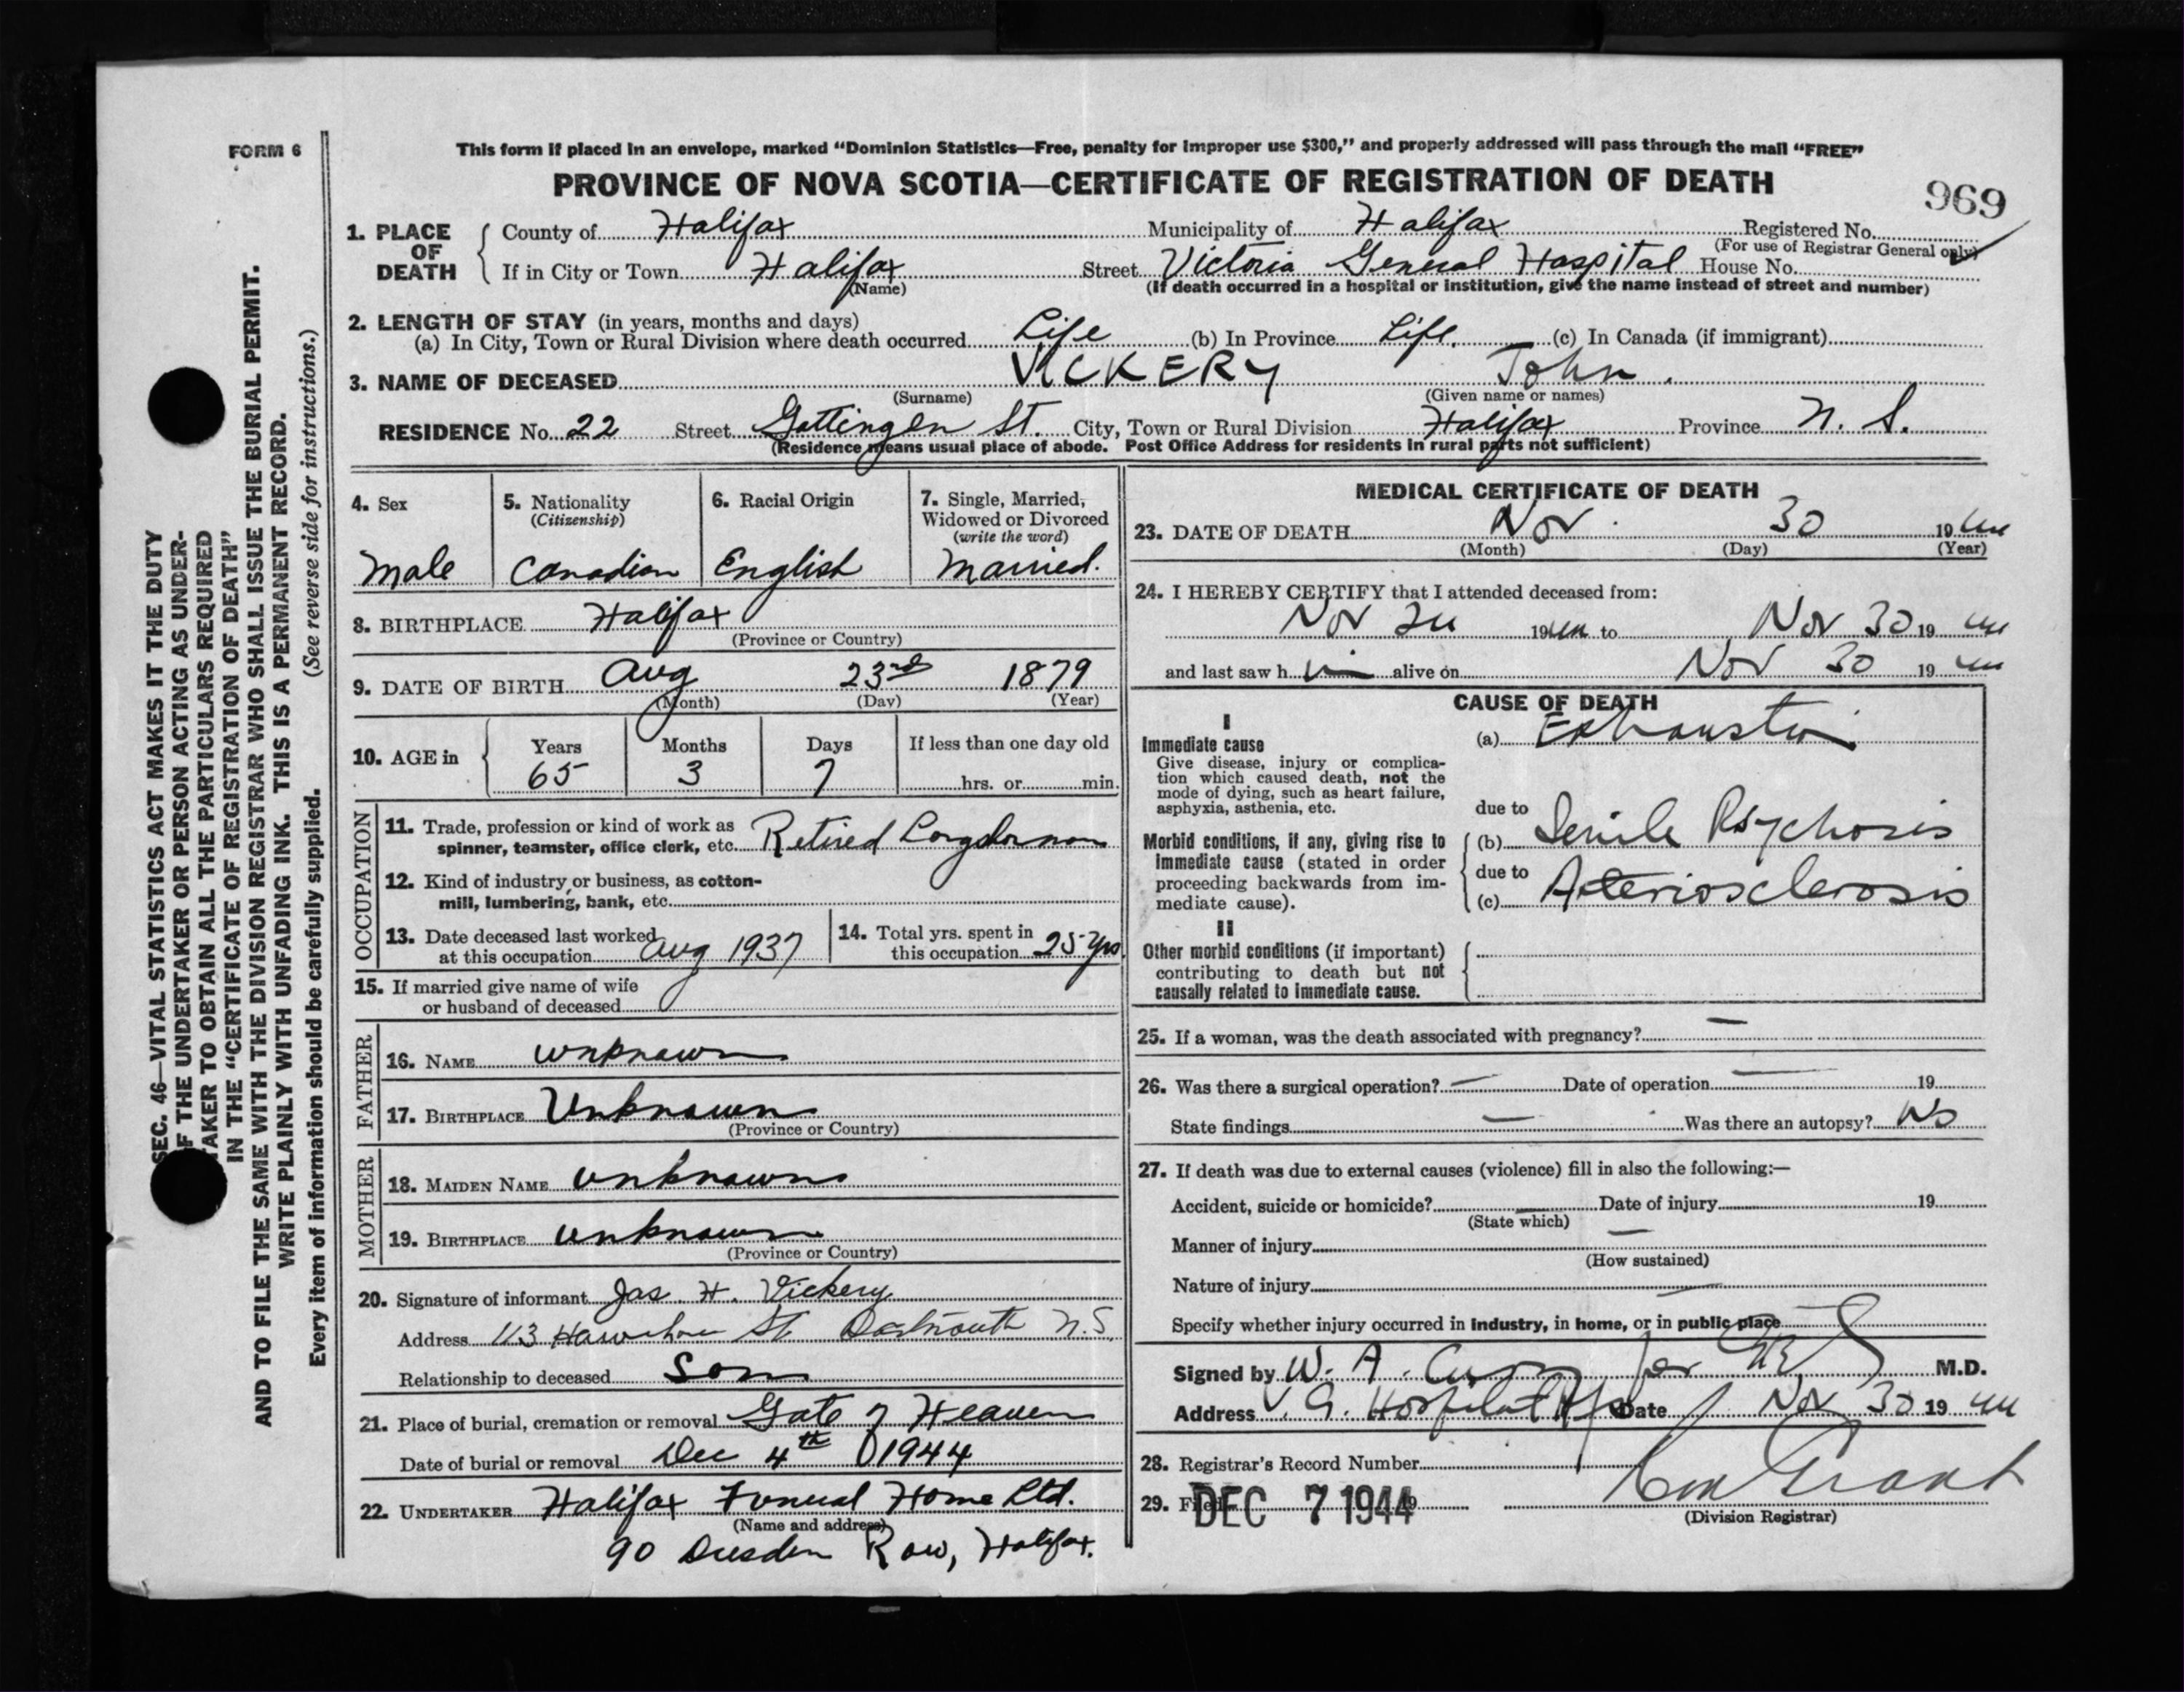 FORM 6
This form if placed in an envelope, marked "Dominion Statistics—Free, penalty for improper use $300," and properly addressed will pass through the mail "FREE"
PROVINCE OF NOVA SCOTIA—CERTIFICATE OF REGISTRATION OF DEATH
969
1. PLACE OF DEATH
County of Halifax Municipality of Halifax Registered No.
(For use of Registrar General only)
If in City or Town Halifax Street Victoria General Hospital House No.
(Name) (If death occurred in a hospital or institution, give the name instead of street and number)
2. LENGTH OF STAY (in years, months and days)
(a) In City, Town or Rural Division where death occurred Life (b) In Province Life. (c) In Canada (if immigrant)
3. NAME OF DECEASED VICKERY John.
(Surname) (Given name or names)
RESIDENCE No. 22 Street Gottingen St. City, Town or Rural Division Halifax Province N. S.
(Residence means usual place of abode. Post Office Address for residents in rural parts not sufficient)
4. Sex
Male
5. Nationality
(Citizenship)
Canadian
6. Racial Origin
English
7. Single, Married,
Widowed or Divorced
(write the word)
Married.
8. BIRTHPLACE Halifax
(Province or Country)
9. DATE OF BIRTH Aug 23rd 1879
(Month) (Day) (Year)
10. AGE in
Years Months Days If less than one day old
65 3 7 hrs. or min.
OCCUPATION
11. Trade, profession or kind of work as
spinner, teamster, office clerk, etc. Retired Longshoreman
12. Kind of industry or business, as cotton-
mill, lumbering, bank, etc.
13. Date deceased last worked
at this occupation Aug 1937
14. Total yrs. spent in
this occupation 25 yrs
15. If married give name of wife
or husband of deceased
FATHER
16. NAME unknown
17. BIRTHPLACE Unknown
(Province or Country)
MOTHER
18. MAIDEN NAME unknown
19. BIRTHPLACE unknown
(Province or Country)
20. Signature of informant Jas. H. Vickery
Address 113 St Dartmouth N.S.
Relationship to deceased Son
21. Place of burial, cremation or removal Gate of Heaven
Date of burial or removal Dec 4th 1944
22. UNDERTAKER Halifax Funeral Home Ltd.
(Name and address)
90 Dresden Row, Halifax.
MEDICAL CERTIFICATE OF DEATH
23. DATE OF DEATH Nov. 30 1944
(Month) (Day) (Year)
24. I HEREBY CERTIFY that I attended deceased from:
Nov 24 1944 to Nov 30 1944
and last saw him alive on Nov 30 1944
CAUSE OF DEATH
I
Immediate cause
Give disease, injury or complica-
tion which caused death, not the
mode of dying, such as heart failure,
asphyxia, asthenia, etc.
(a) Exhaustion
due to
Morbid conditions, if any, giving rise to
immediate cause (stated in order
proceeding backwards from im-
mediate cause).
(b) Senile Psychosis
due to
(c) Arteriosclerosis
II
Other morbid conditions (if important)
contributing to death but not
causally related to immediate cause.
25. If a woman, was the death associated with pregnancy? —
26. Was there a surgical operation? — Date of operation — 19
State findings — Was there an autopsy? No
27. If death was due to external causes (violence) fill in also the following:—
Accident, suicide or homicide? Date of injury 19
(State which)
Manner of injury —
(How sustained)
Nature of injury —
Specify whether injury occurred in industry, in home, or in public place
Signed by W. A. for M.D.
Address V. G. Hospital Date Nov 30 1944
28. Registrar's Record Number
29. Filed DEC 7 1944 Grant
(Division Registrar)
SEC. 46—VITAL STATISTICS ACT MAKES IT THE DUTY
OF THE UNDERTAKER OR PERSON ACTING AS UNDER-
TAKER TO OBTAIN ALL THE PARTICULARS REQUIRED
IN THE "CERTIFICATE OF REGISTRATION OF DEATH"
AND TO FILE THE SAME WITH THE DIVISION REGISTRAR WHO SHALL ISSUE THE BURIAL PERMIT.
WRITE PLAINLY WITH UNFADING INK. THIS IS A PERMANENT RECORD.
Every item of information should be carefully supplied. (See reverse side for instructions.)